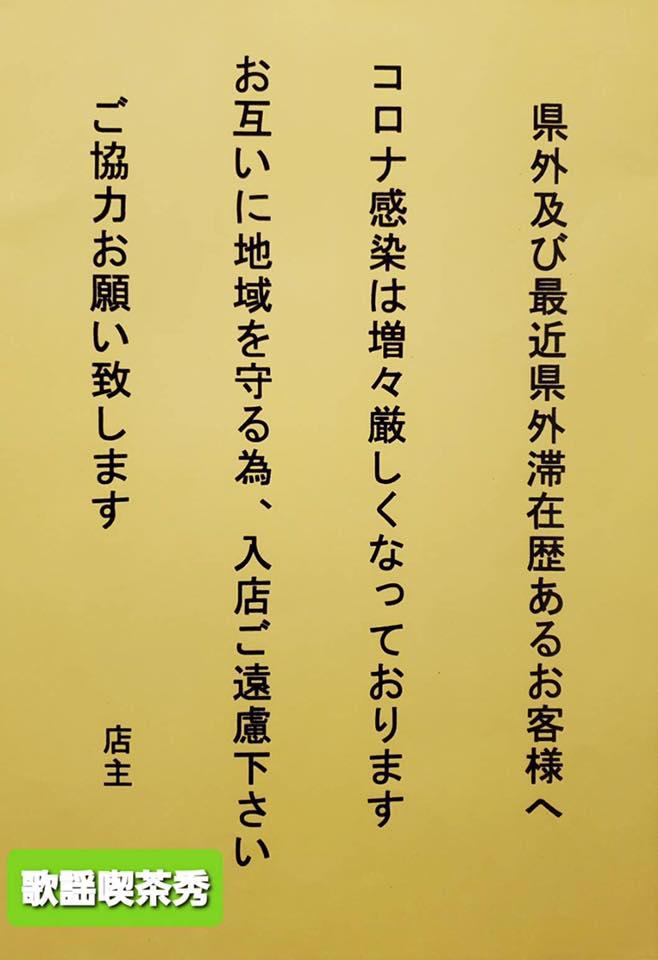 県外及び最近県外滞在歴あるお客様へ
コロナ感染は増々厳しくなっております
お互いに地域を守る為、入店ご遠慮下さい
ご協力お願い致します
店主
歌謡喫茶秀